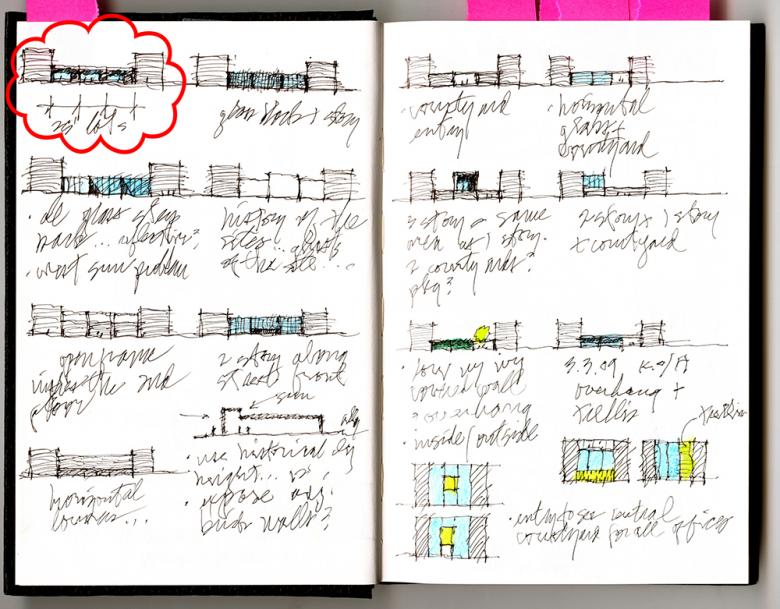 25' lots
glass block + story
all glass step
back... reflective?
west sun problem
history of the
sites... ghosts
of the site...
open frame
2nd
floor
2 story along
street front
sun
horizontal
louvers...
• use historical bldg
height... vs.
• expose adj.
bldg walls?
• courtyard
entry
• horizontal
glass +
courtyard
3 story = same
area as 1 story.
2 courtyards?
pkg?
2 story + 1 story
+ courtyard
ivy
wall
• overhang
• inside/outside
3.3.09
overhang +
trellis
• entry to see central
courtyard for all offices